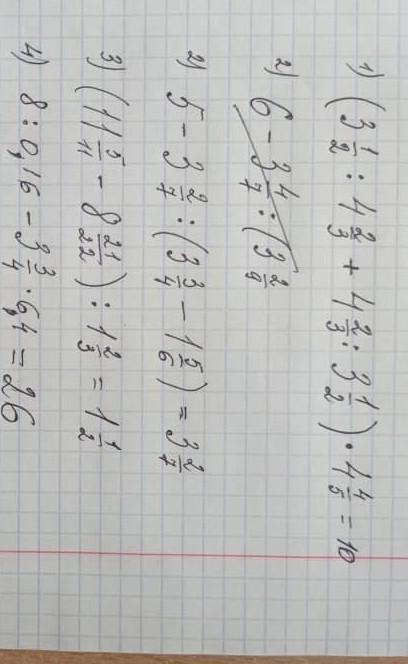 1) (3 1/2 : 4 2/3 + 4 2/3 : 3 1/2) · 4 4/5 = 10
2) 6 - 3 4/7 : (3 2/9
2) 5 - 3 2/7 : (3 3/4 - 1 5/6) = 3 2/7
3) (11 5/11 - 8 21/22) : 1 2/3 = 1 1/2
4) 8 : 0,16 - 3 3/4 · 6,4 = 26